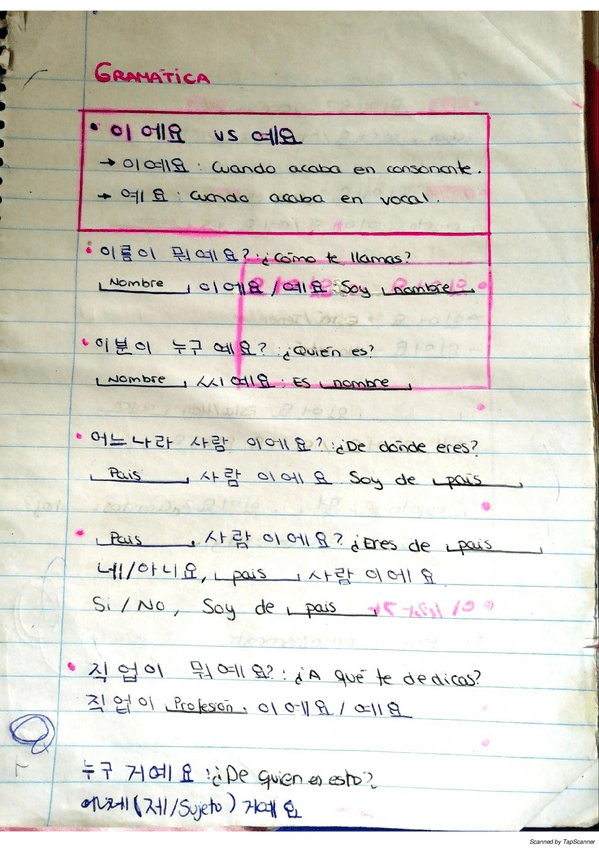 GRAMÁTICA
• 이에요 vs 예요
→ 이예요: Cuando acaba en consonante.
→ 예요: Cuando acaba en vocal.
• 이름이 뭐예요?: ¿Cómo te llamas?
Nombre 이에요/예요: Soy nombre.
• 이분이 누구예요? ¿Quién es?
Nombre 씨예요: Es nombre
• 어느나라 사람 이에요?: ¿De dónde eres?
País 사람 이에요 Soy de país
• País 사람 이에요? ¿Eres de país
네/아니요, país 사람 이에요
Si/No, Soy de país
• 직업이 뭐예요?: ¿A qué te dedicas?
직업이 Profesión 이에요/예요
누구 거예요: ¿De quien es esto?
(제/Sujeto) 거예요
Scanned by TapScanner